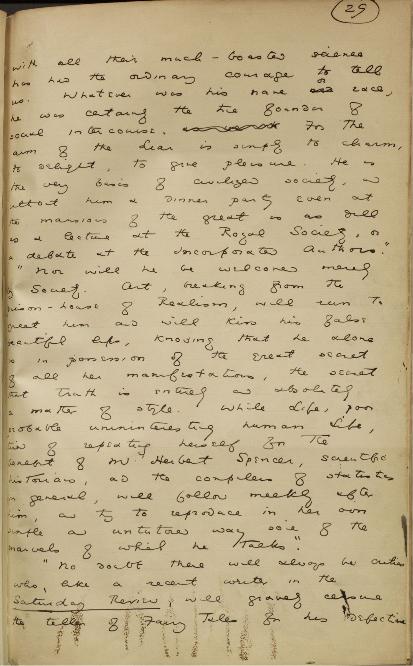 29
with all their much-boasted science
has had the ordinary courage to tell
us. Whatever was his name or race,
he was certainly the true founder of
social intercourse. For the
aim of the liar is simply to charm,
to delight, to give pleasure. He is
the very basis of civilized society, and
without him a dinner party even at
the mansions of the great is as dull
as a lecture at the Royal Society, or
a debate at the Incorporated Authors."
"Nor will he be welcomed merely
by Society. Art, breaking from the
prison-house of Realism, will run to
greet him and will kiss his false
beautiful lips, knowing that he alone
is in possession of the great secret
of all her manifestations, the secret
that truth is entirely and absolutely
a matter of style. While Life, poor
probable uninteresting human Life,
tired of repeating herself for the
benefit of Mr Herbert Spencer, scientific
historians, and the compilers of statistics
in general, will follow meekly after
him, and try to reproduce in her own
simple and untutored way some of the
marvels of which he talks."
"No doubt there will always be critics
who, like a recent writer in the
Saturday Review, will gravely censure
the teller of Fairy Tales for his defective